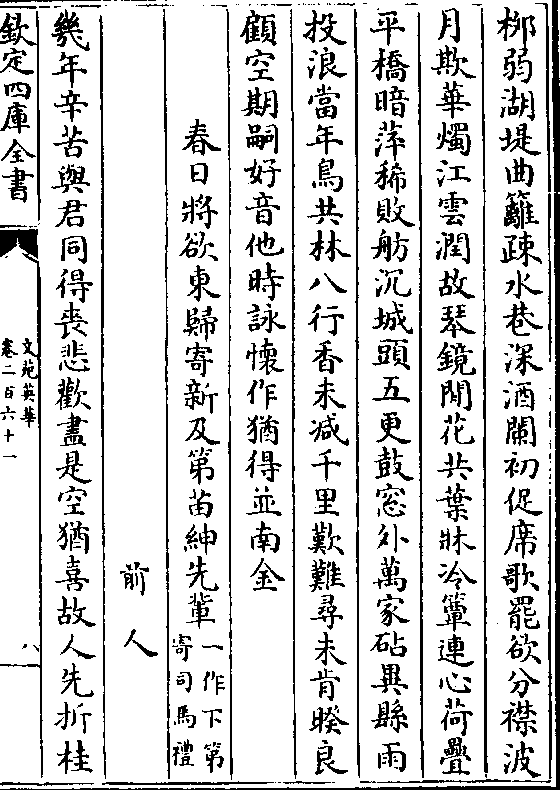 柳弱湖堤曲籬疎水巷深酒闌初促席歌罷欲分襟波
月欺華燭江雲潤故琴鏡開花共葉牀冷簟連心荷疊
平橋暗萍稀敗舫沉城頭五更鼓窓外萬家砧異縣雨
投浪當年鳥共林八行香未減千里歎難尋未肯暌良
顧空期嗣好音他時詠懷作猶得並南金
春日將欲東歸寄新及第苗紳先輩一作下第
寄司馬禮
前人
幾年辛苦與君同得喪悲歡盡是空猶喜故人先折桂
欽定四庫全書
文苑英華
卷二百六十一
八